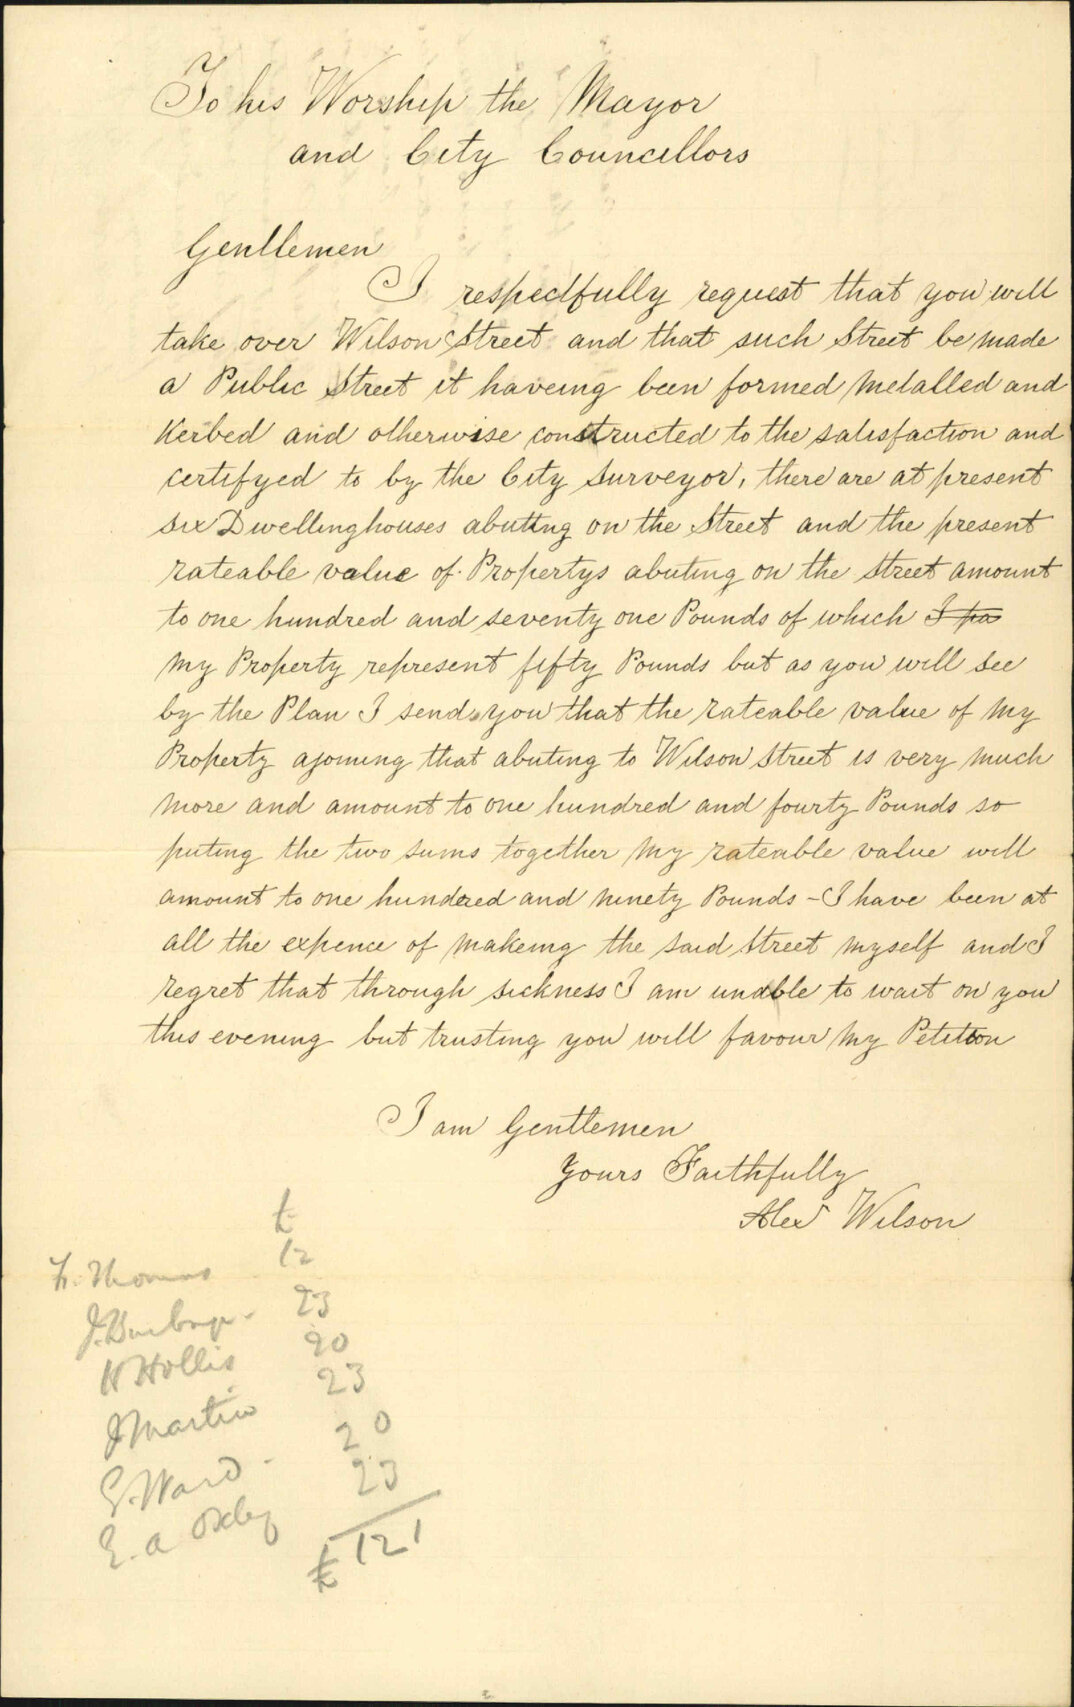 To his Worship the Mayor
and City Councillors
Gentlemen
I respectfully request that you will
take over Wilson Street and that such Street be made
a Public Street it haveing been formed Metalled and
Kerbed and otherwise constructed to the satisfaction and
certifyed to by the City Surveyor, there are at present
six Dwellinghouses abutting on the Street and the present
rateable value of Propertys abuting on the Street amount
to one hundred and seventy one Pounds of which I pa
My Property represent fifty Pounds but as you will see
by the Plan I send you that the rateable value of My
Property ajoining that abuting to Wilson Street is very much
More and amount to one hundred and fourty Pounds so
puting the two sums together My rateable value will
amount to one hundred and ninety Pounds - I have been at
all the expence of Makeing the said Street Myself and I
regret that through sickness I am unable to wait on you
this evening but trusting you will favour My Petition
I am Gentlemen
Yours Faithfully
Alex Wilson
£
Thomas 12
J. 23
H Hollis 20
J Martin 23
G. Ward 20
E. A Oxley 23
£ 121